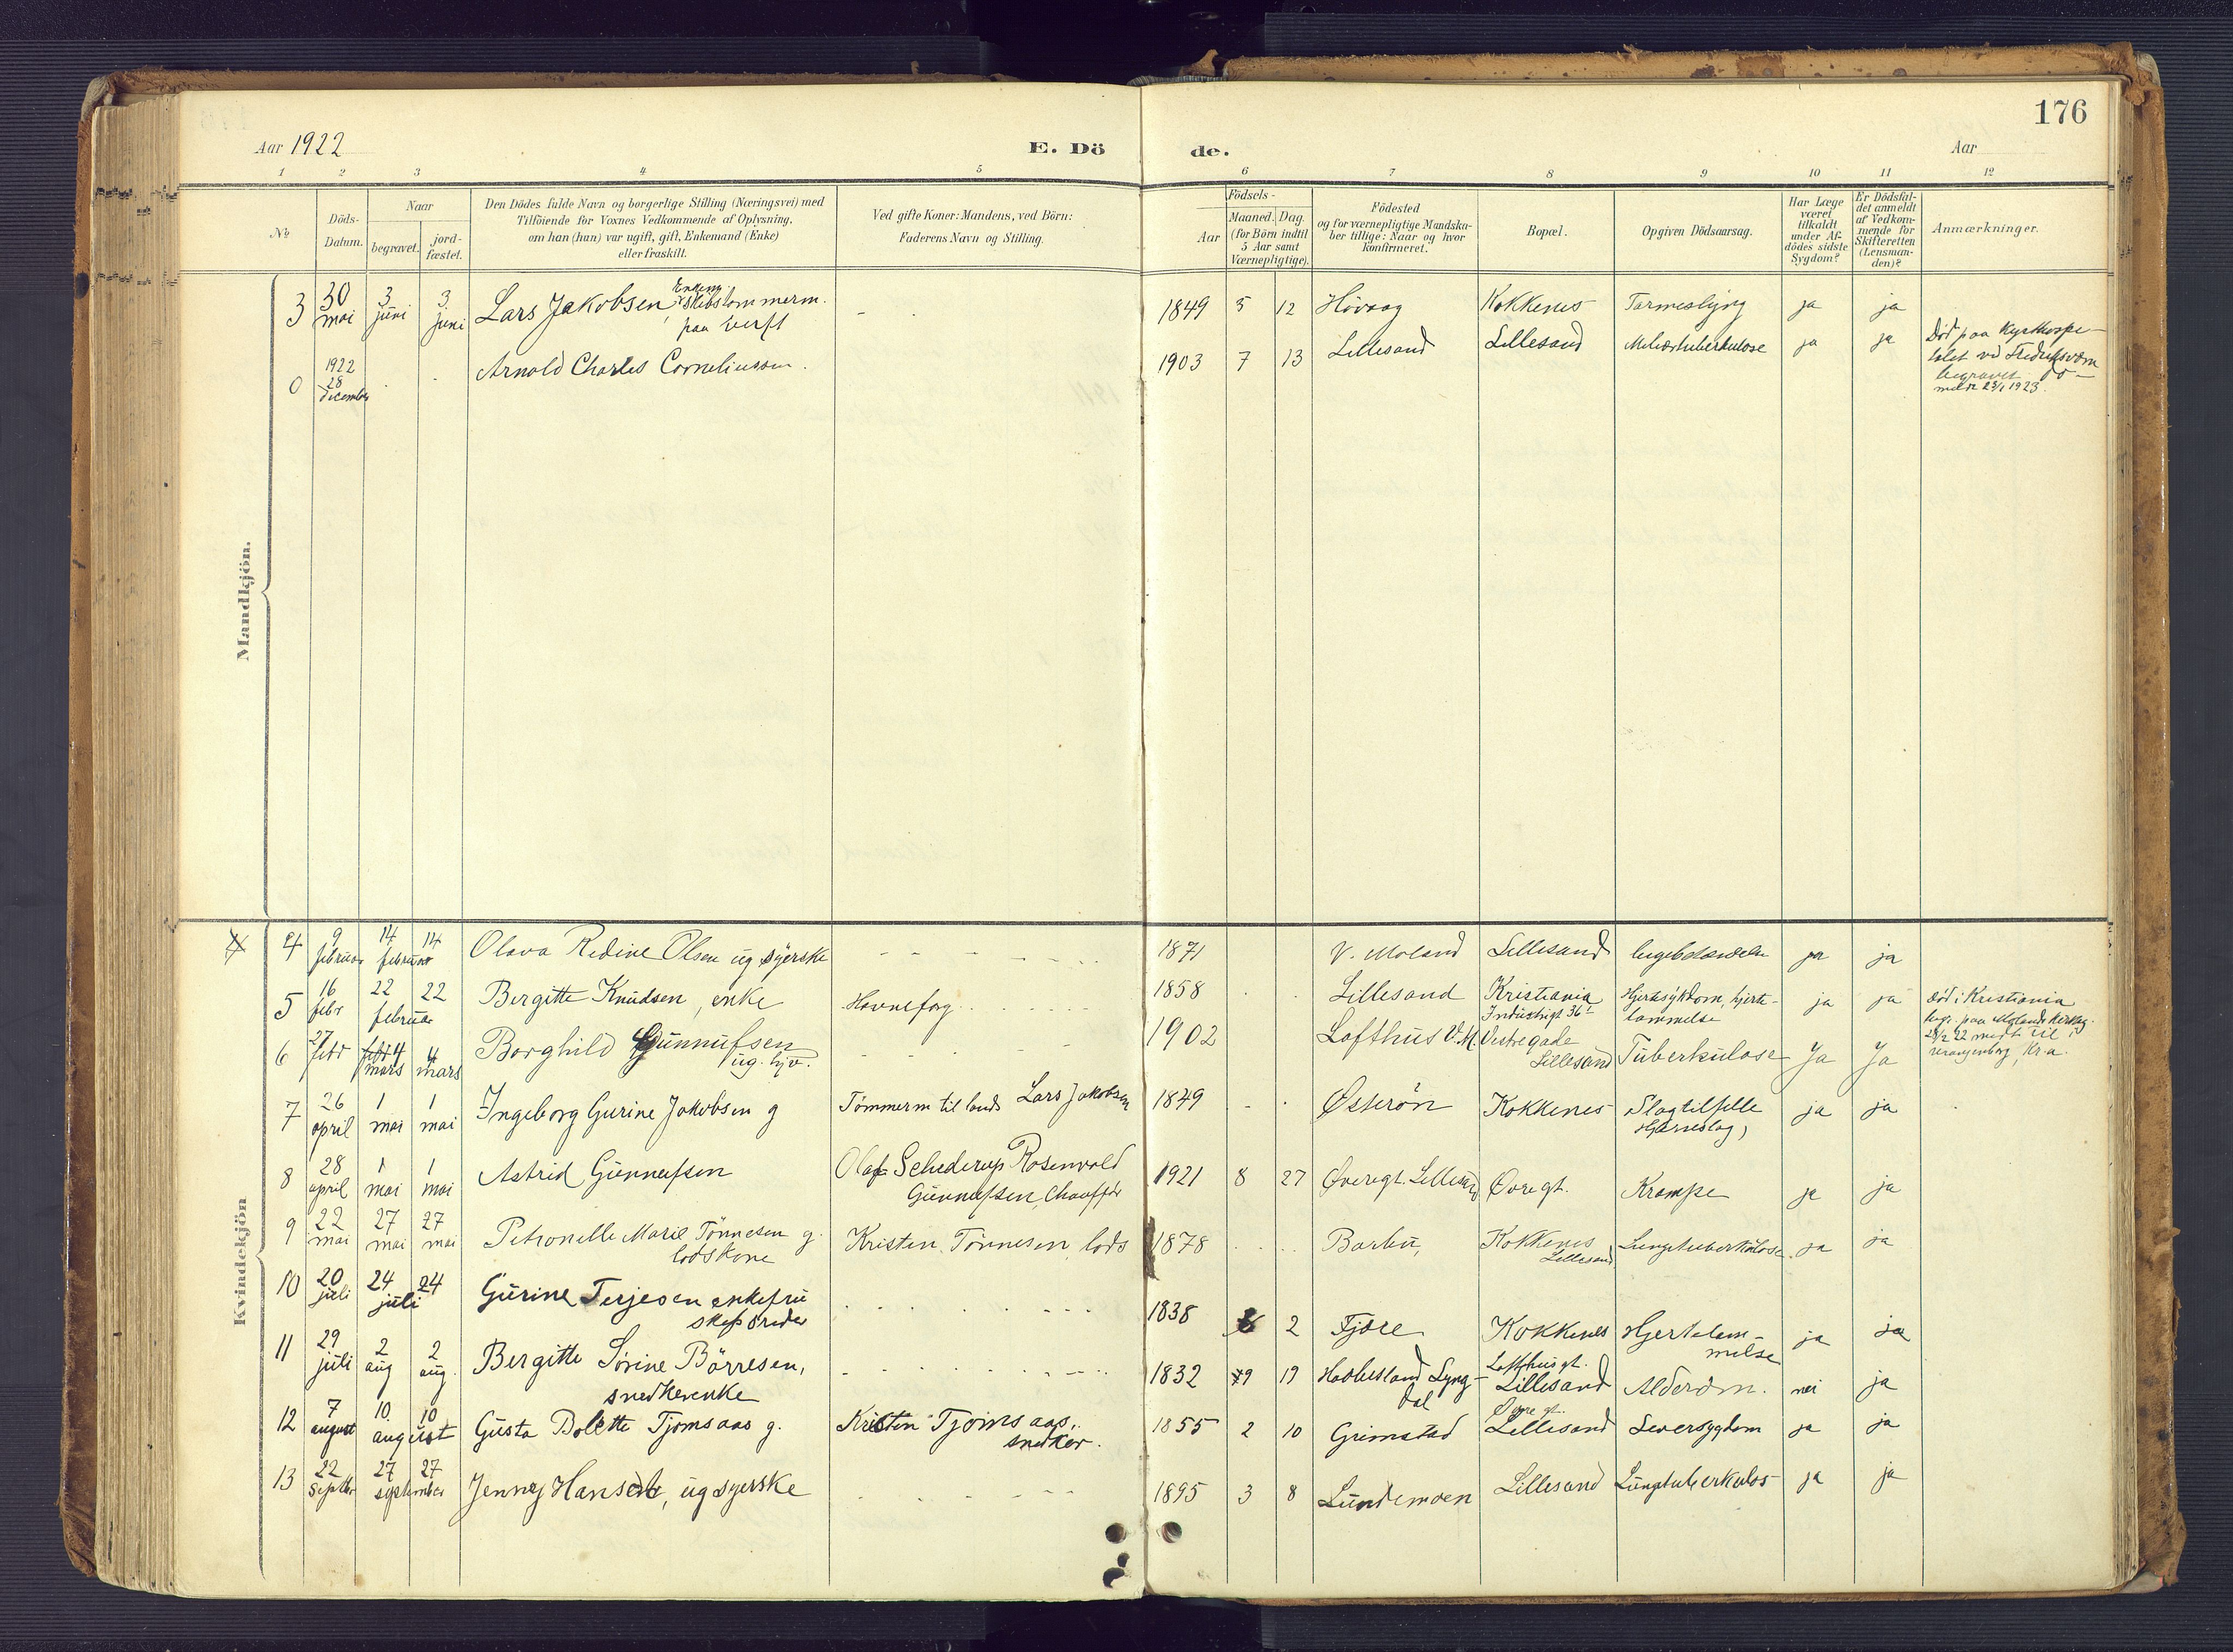 176
Aar 1922
E. Dö
de.
Aar
1 2 3 4 5 6 7 8 9 10 11 12
No
Döds-
Datum.
Naar
begravet.
jord-
fæstet.
Den Dödes fulde Navn og borgerlige Stilling (Næringsvei) med
Tilföiende for Voxnes Vedkommende af Oplysning,
om han (hun) var ugift, gift, Enkemand (Enke)
eller fraskilt.
Ved gifte Koner: Mandens, ved Börn:
Faderens Navn og Stilling.
Födsels-
Aar
Maaned. Dag.
(for Börn indtil
5 Aar samt
Værnepligtige).
Födested
og for værnepligtige Mandska-
ber tillige: Naar og hvor
konfirmeret.
Bopæl.
Opgiven Dödsaarsag.
Har Læge
været
tilkaldt
under Af-
dödes sidste
Sygdom?
Er Dödsfal-
det anmeldt
af Vedkom-
mende for
Skifteretten
(Lensman-
den)?
Anmærkninger.
Mandkjön.
3 30 mai 3 juni 3 juni Lars Jakobsen, Enkem. Skibstømmerm.
paa verft
1849 5 12 Høvaag Kokkenes Tarmeslyng ja ja
0 1922 28 december Arnold Charles Corneliussen.
1903 7 13 Lillesand Lillesand Miliærtuberkulose ja ja
Død paa Kysthospi-
talet ved Fredriksværn
begravet do-
1923.
Kvindekjön
4 9 februar 14 14 februar Olava Redine Olsen ug syerske
1871 V. Moland Lillesand ja ja
5 16 febr 22 22 februar Bergitte Knudsen, enke Havnefog.
1858 Lillesand Kristiania
Industrigt 36 Hjertesykdom, hjerte-
lammelse ja ja
død i Kristiania
begr. paa Molands kirkeg.
6 27 febr 4 mars 4 mars Borghild Gunnufsen
ug. hjv.
1902 Lofthus V.M. Vestregade
Lillesand Tuberkulose Ja Ja
7 26 april 1 mai 1 mai Ingeborg Gurine Jakobsen g Tømmerm til lands Lars Jakobsen
1849 Østerön Kokkenes Slagtilfelle
Hjerneslag, ja ja
8 28 april 1 mai 1 mai Astrid Gunnufsen Olaf Schederup Rosenvold
Gunnufsen, Chauffør
1921 8 27 Øvregt. Lillesand Øvregt. Krampe ja ja
9 22 mai 27 mai 27 mai Petronelle Marie Tönnesen g.
lodskone Kristen Tönnesen, lods
1878 Barbu, Kokkenes
Lillesand Lungetuberkulose ja ja
10 20 juli 24 24 juli Gurine Terjesen enkefru
skipsreder
1838 2 Fjære Kokkenes Hjertelam-
melse ja ja
11 29 juli 2 aug 2 aug. Bergitte Sørine Börresen,
snedkerenke
1832 9 19 Lyng-
dal Lofthusgt.
Lillesand Alderdom. nei ja
12 7 august 10. 10 august Gusta Bolette Tjomsaas g. Kristen Tjomsaas,
snedker.
1855 2 10 Grimstad Øvre gt.
Lillesand Leversygdom ja ja
13 22 Septbr 27 27 september Jenny Hansen, ug syerske
1895 3 8 Lundemoen Lillesand Lungetuberkulos ja ja